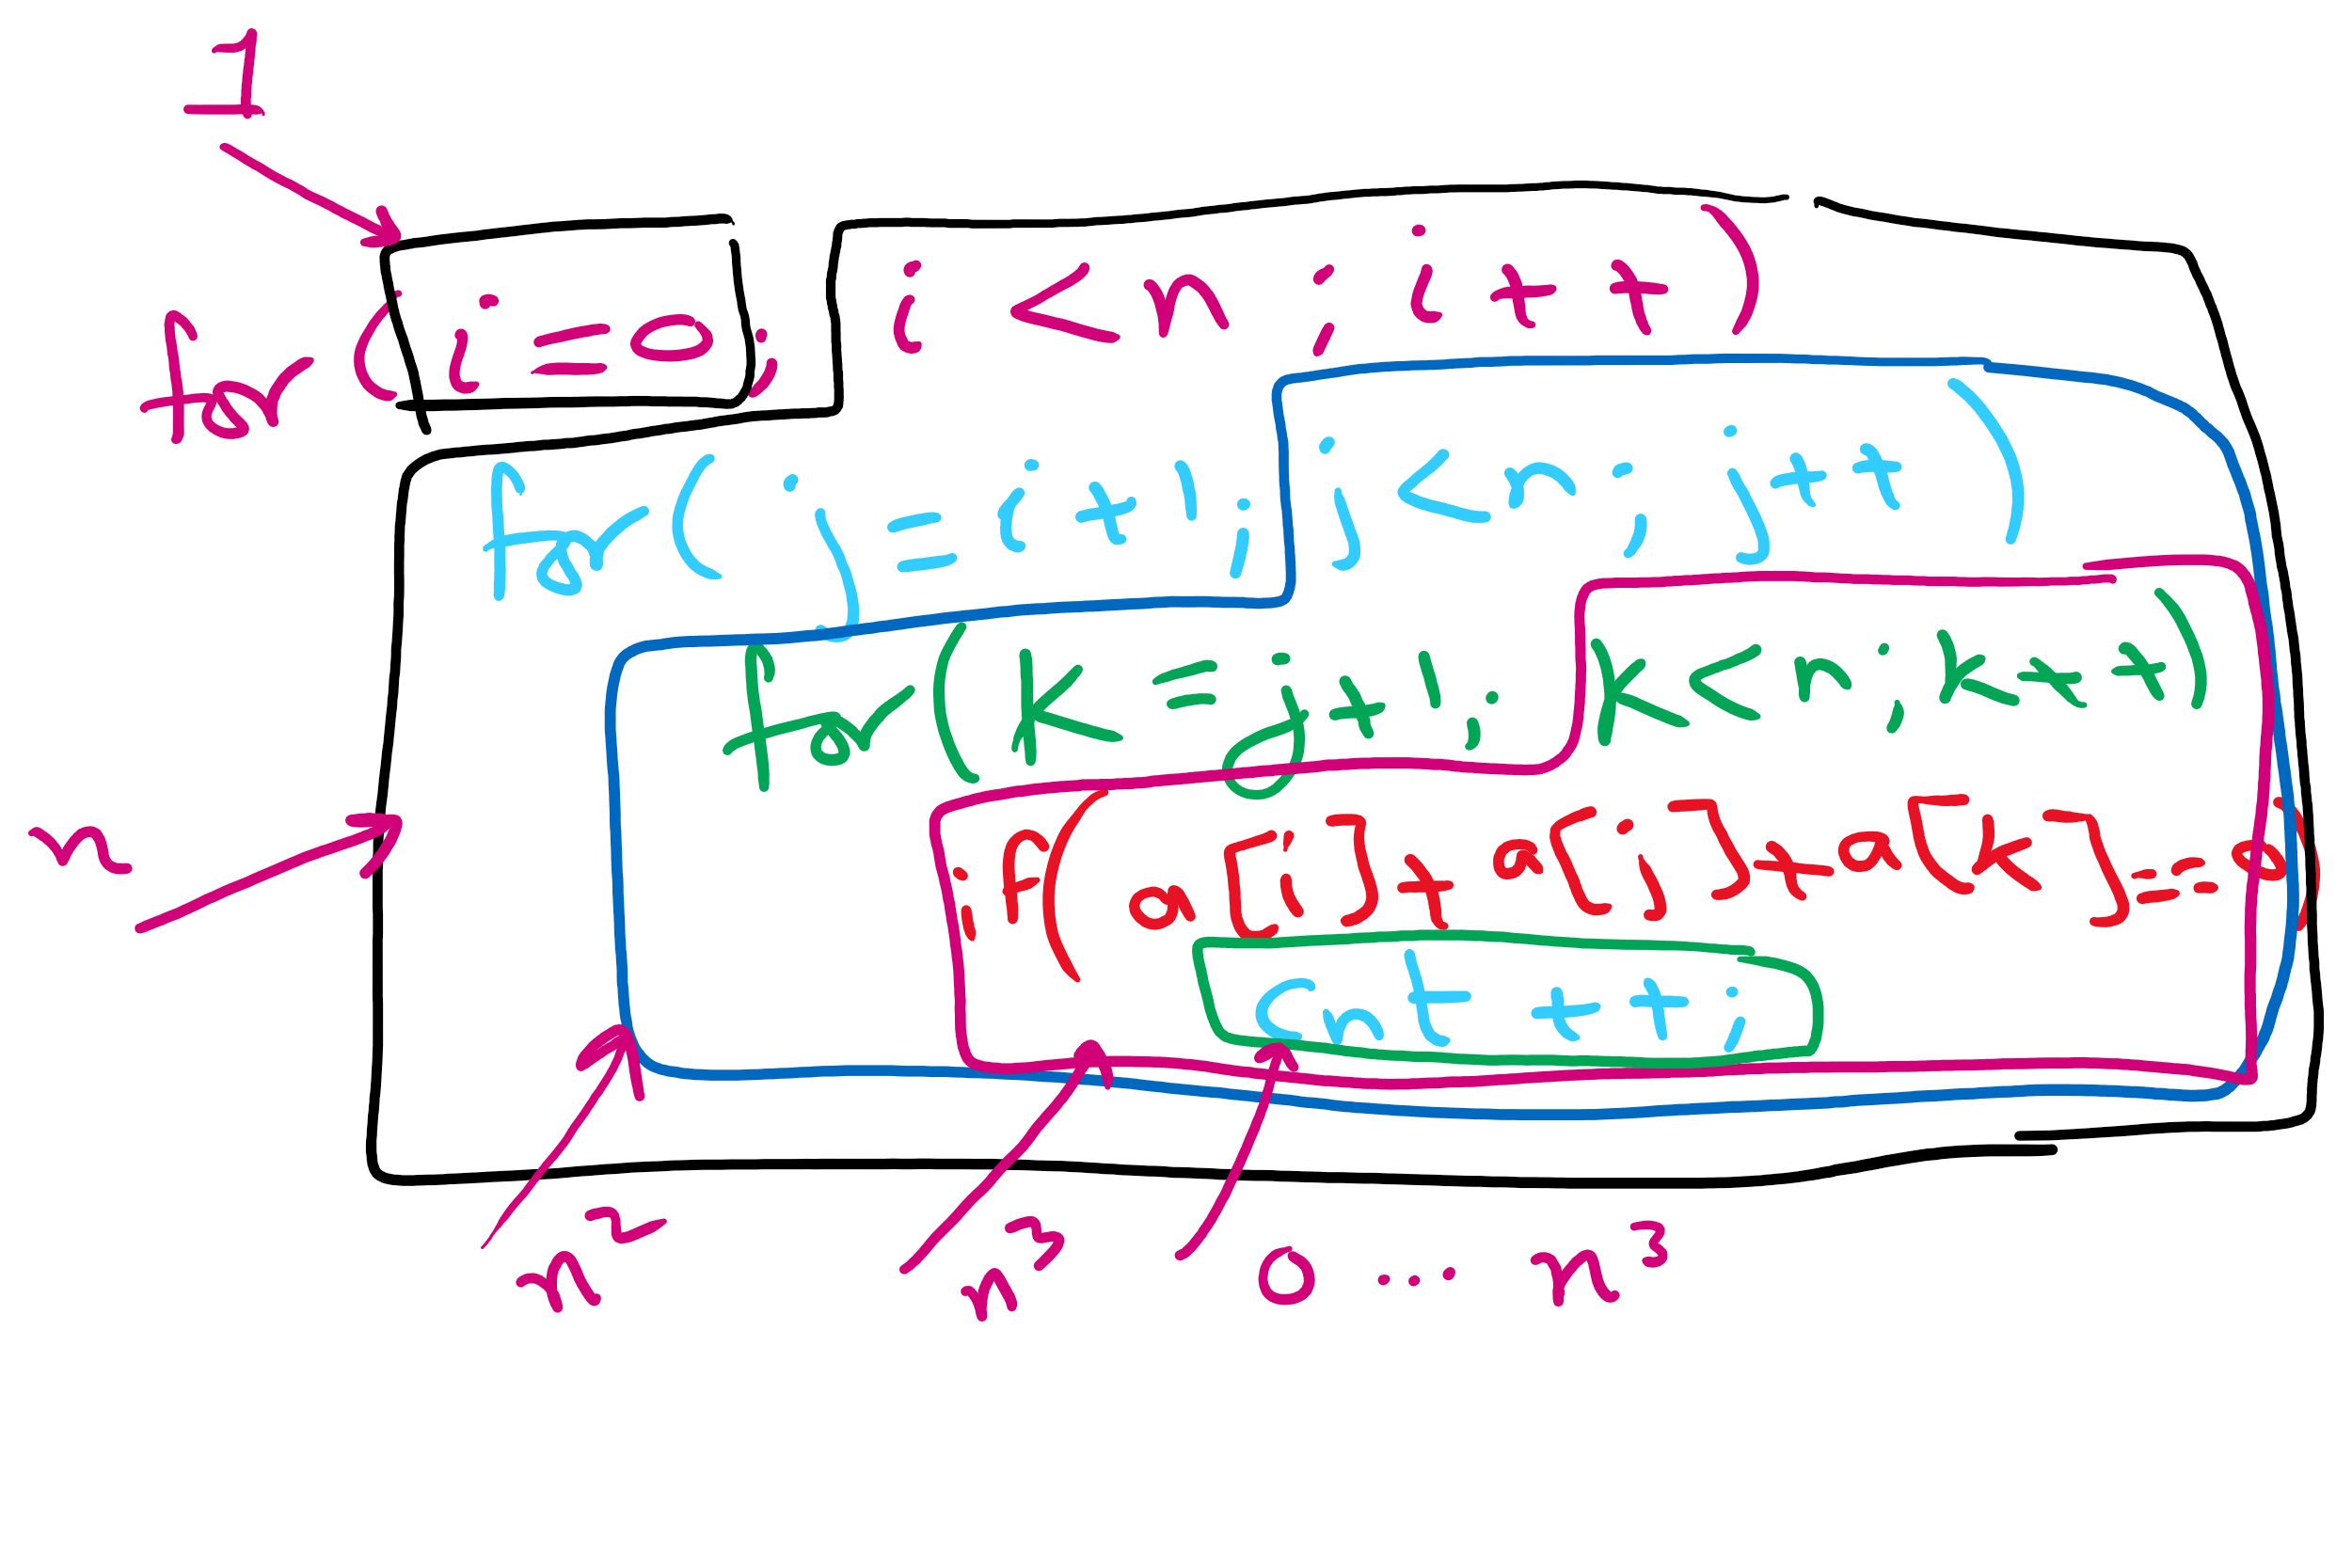 1
for (i = 0; i < n ; i++)
for (j = i+1; j < n ; j++)
for (k = j+1; k < n; k++)
n
if (a[i]+a[j]+a[k]==0)
cnt ++;
n² n³ 0 ... n³